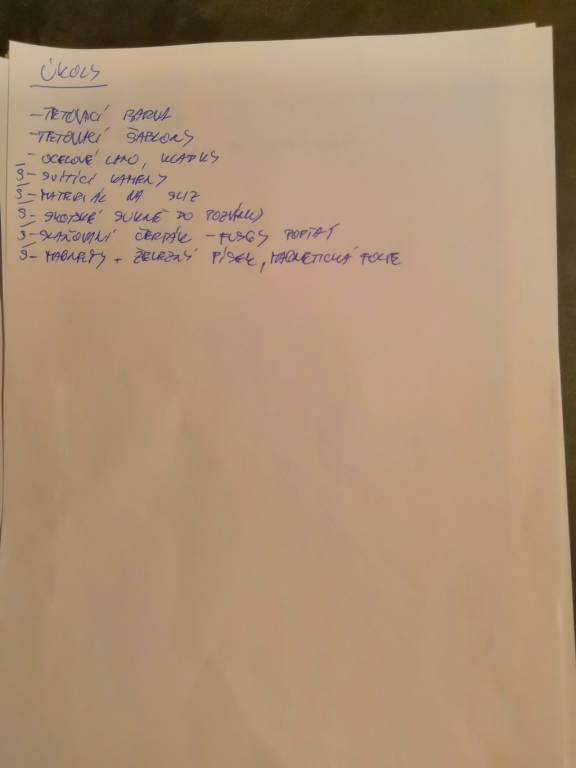 ÚKOLY
- TETOVACÍ BARVA
- TETOVACÍ ŠABLONY
- OCELOVÉ LANO, KLADKY
S - SVÍTÍCÍ KAMENY
S - MATERIÁL NA SLIZ
S - SKOTSKÉ SUKNĚ DO
S - SLAŇOVÁNÍ ČERŤÁK - FUSEY POPTAT
S - MAGNETY + ŽELEZNÝ PÍSEK, MAGNETICKÁ FOLIE